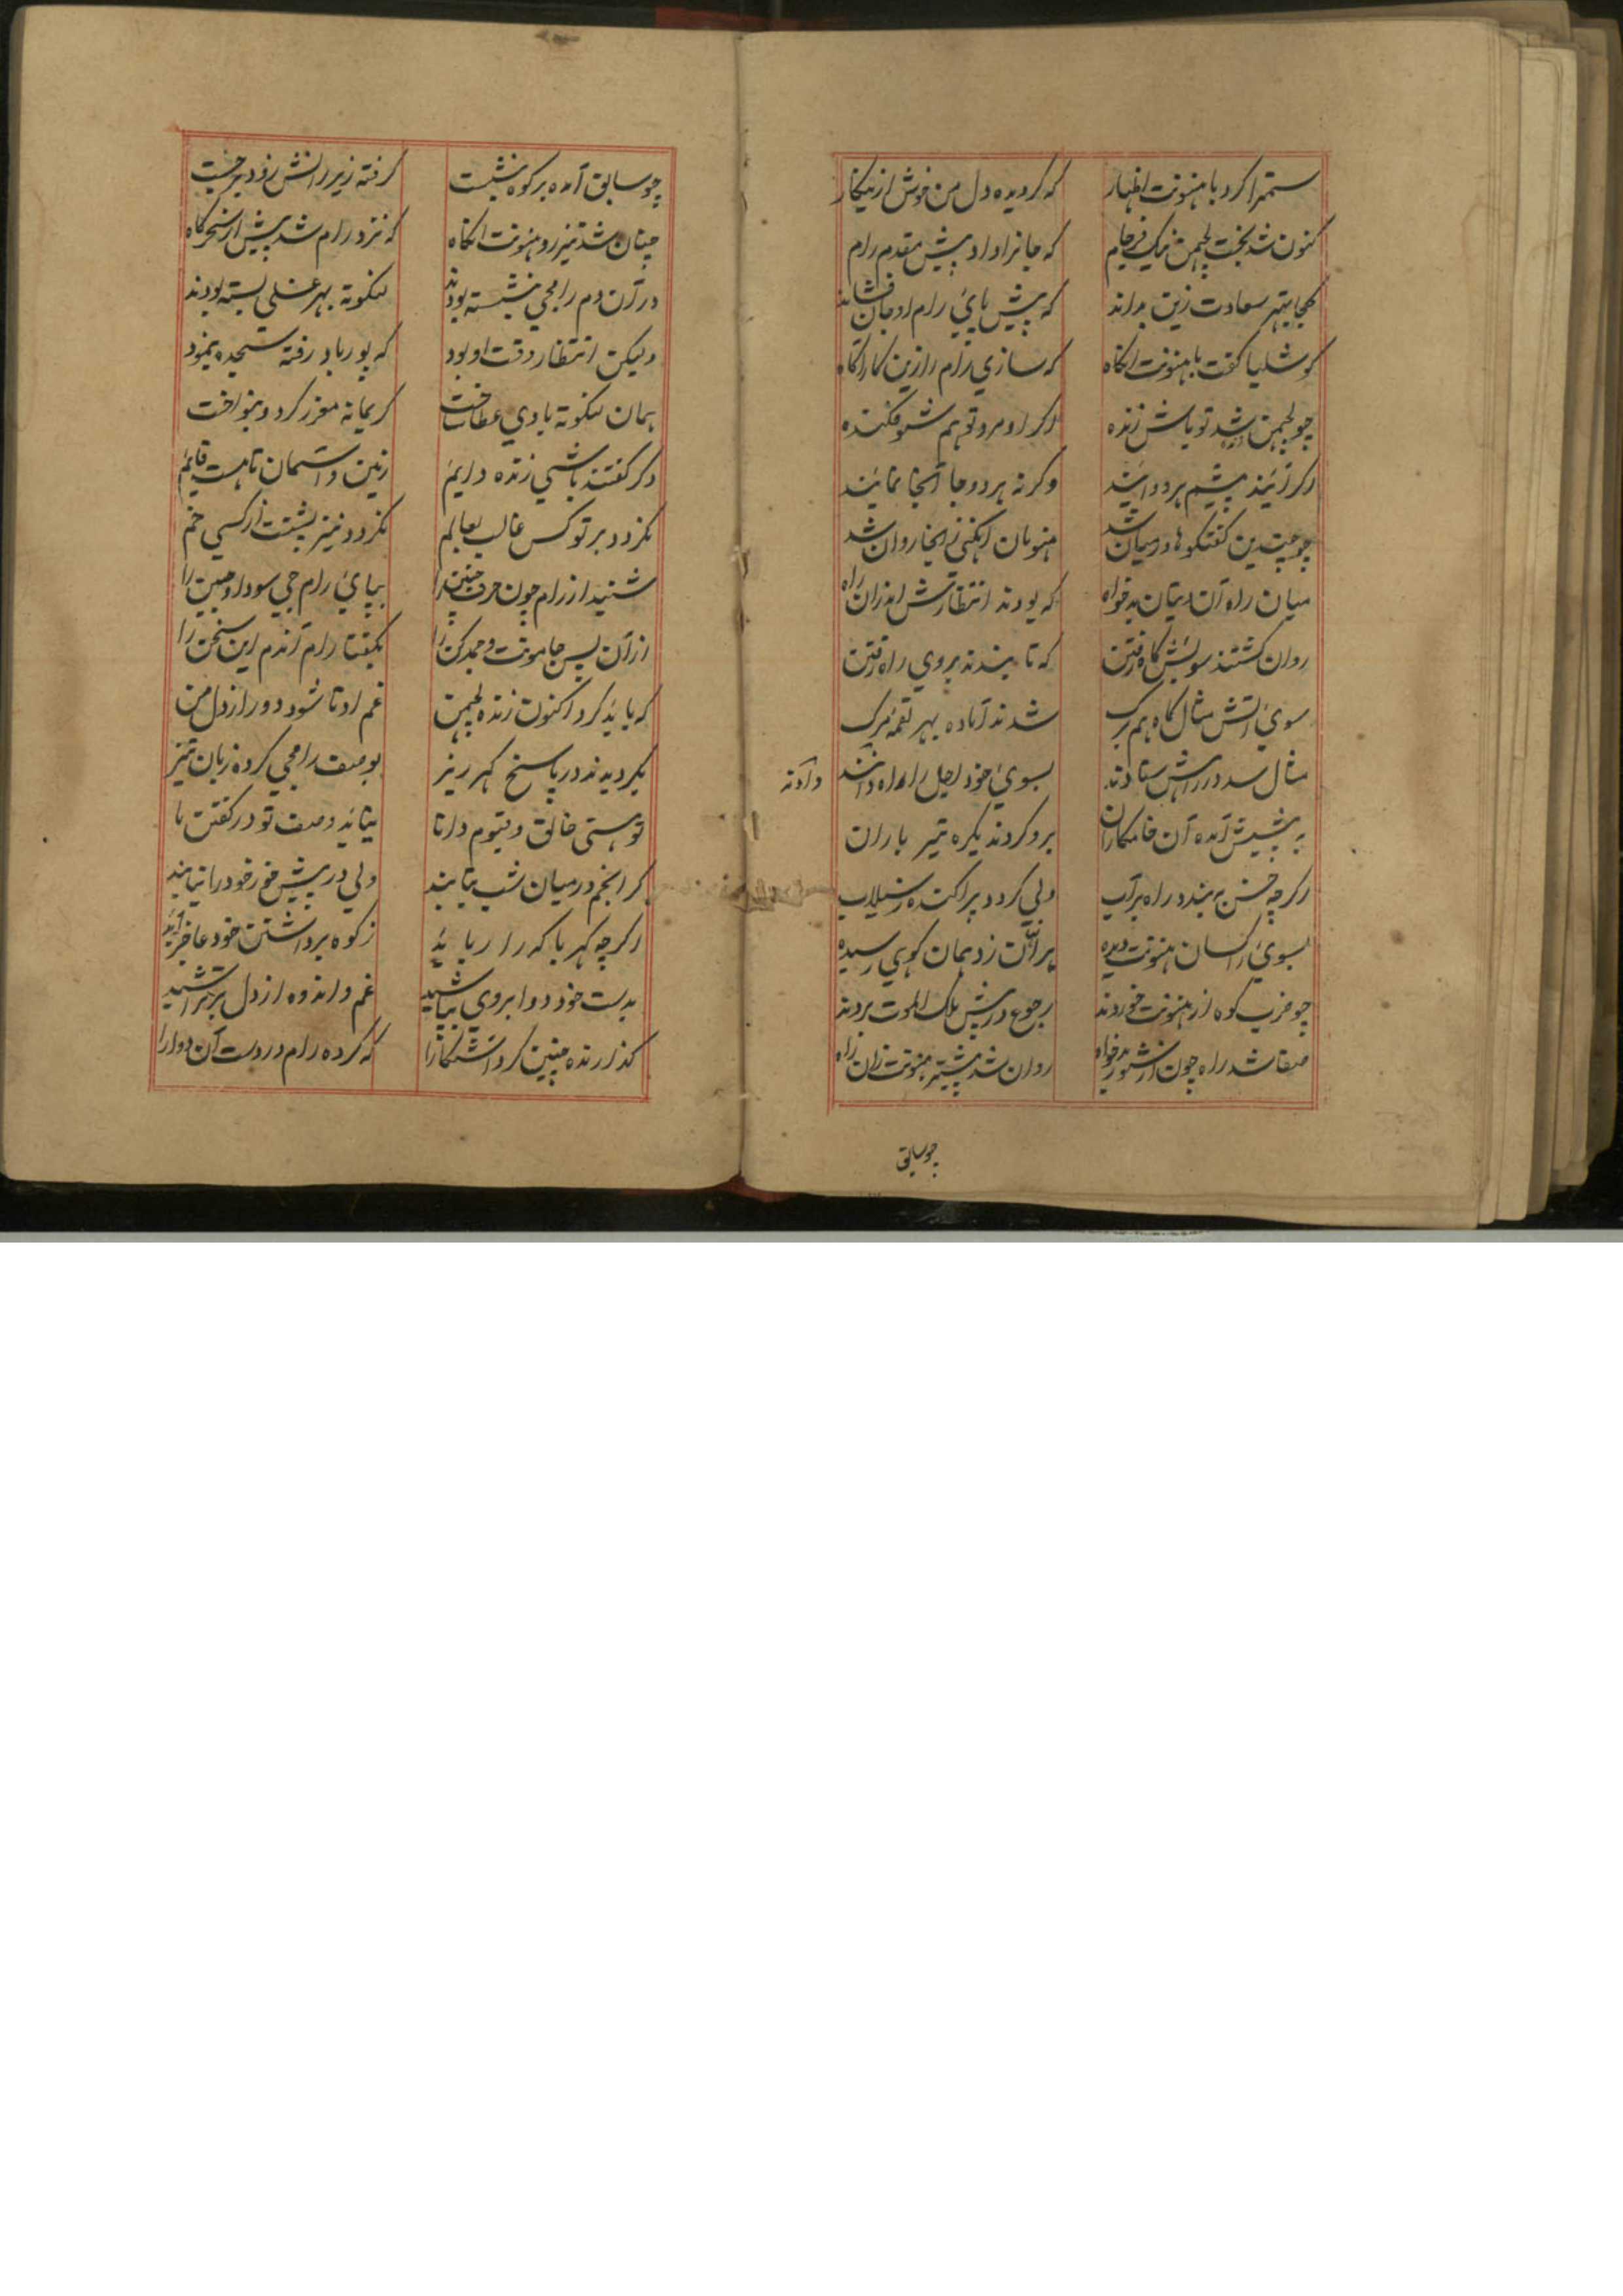 ستمرا کرد با هنونت اظهار که گردیده دل من خوش ازینکار
کنون شد بخت لچهمن نیک فرجام که جانرا داد پیش مقدم رام
کجا بهتر سعادت زین بداند که پیش پای رام او جان فشاند
کوشلیا گفت با هنونت انگاه که سازی رام را زین کار اگاه
چو لچهمن شد تو باش زنده اگر او مرد تو هم شو فکنده
اگر آیند پیشم هر دو آیند وگرنه هر دو جا آنجا نمایند
چو چندین گفتگوها در میان شد هنومان زانجا روان شد
میان راه آن دیوان بدخواه که بودند انتظارش اندران راه
روان گشتند سویش گاه رفتن که تا بندند بروی راه رفتن
سوی آتش مثال کاه هم برگ شدند آماده بهر لقمه مرگ
مثال سد در رهش ستادند بسوی خود اجل را راه دادند
به پیشش آمده آن خامکاران برو کردند یکره تیر باران
اگرچه خس به بندد راه بر آب ولی گردد پراکنده ز سیلاب
بسوی راکسان هنونت دیده بر آنان زد همان کوهی رسیده
چو ضرب کوه از هنونت خوردند رجوع در پیش ملک الموت بردند
صفا شد راه چون از شور بدخواه روان شد پیشتر هنونت زان راه
چو سابق
چو سابق آمده بر کوه نشست گرفته زیر رانش زود برجست
چنان شد تیز رو هنونت انگاه که نزد رام شد پیش از سحرگاه
در آن دم رامجی بنشسته بودند لنگوته بهر غسلی بسته بودند
ولیکن انتظار وقت او بود که پور باد رفته سجده بنمود
همان لنگوته با وی عطا ساخت کریمانه معزز کرد و بنواخت
دگر گفتند باشی زنده دایم زمین و آسمان تا هست قایم
نگردد بر تو کس غالب بعالم نگردد نیز پشتت از کسی خم
شنید از رام چون حرف چنین را بپای رام جی سود او جبین را
از آن پس جامونت و بگفتا رام آندم این سخن را
که باید کرد اکنون زنده لچهمن غم او تا شود دور از دل من
بگردیدند در پاسخ گهر ریز بوصف رامجی کرده زبان تیز
تو هستی خالق و قیوم و دانا نیاید وصف تو در گفتن ما
گر انجم در میان شب بتابند ولی در پیش خور خود را نیابند
اگرچه کهربا که را رباید ز کوه برداشتن خود عاجز آید
بدست خود دوا بروی غم و اندوه از دل بر
گذارنده چنین کرد آشکارا که کرده رام در دست آن دوا را